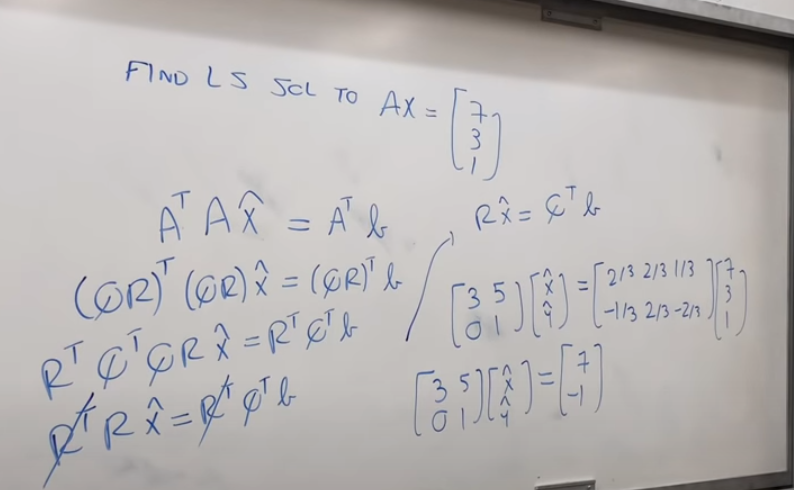 FIND LS SOL TO AX = [7 3 1]
AᵀA x̂ = Aᵀ b
(QR)ᵀ (QR) x̂ = (QR)ᵀ b
Rᵀ Qᵀ Q R x̂ = Rᵀ Qᵀ b
Rᵀ R x̂ = Rᵀ Qᵀ b
R x̂ = Qᵀ b
[3 5 0 1] [x̂ ŷ] = [2/3 2/3 1/3 -1/3 2/3 -2/3] [7 3 1]
[3 5 0 1] [x̂ ŷ] = [7 -1]